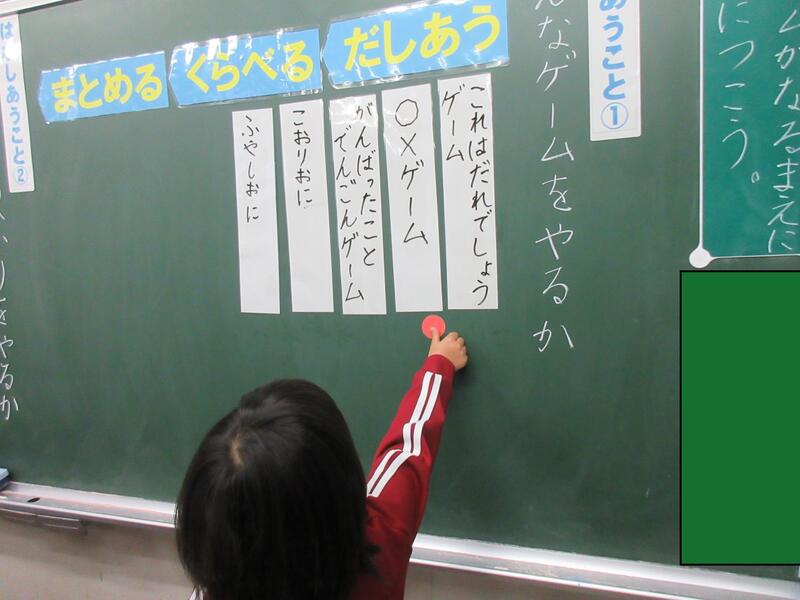 ムがなるまえに
につこう。
あうこと①
んなゲームをやるか
だしあう
くらべる
まとめる
これはだれでしょう
ゲーム
○×ゲーム
がんばったこと
でんごんゲーム
こおりおに
ふやしおに
はなしあうこと②
りをやるか